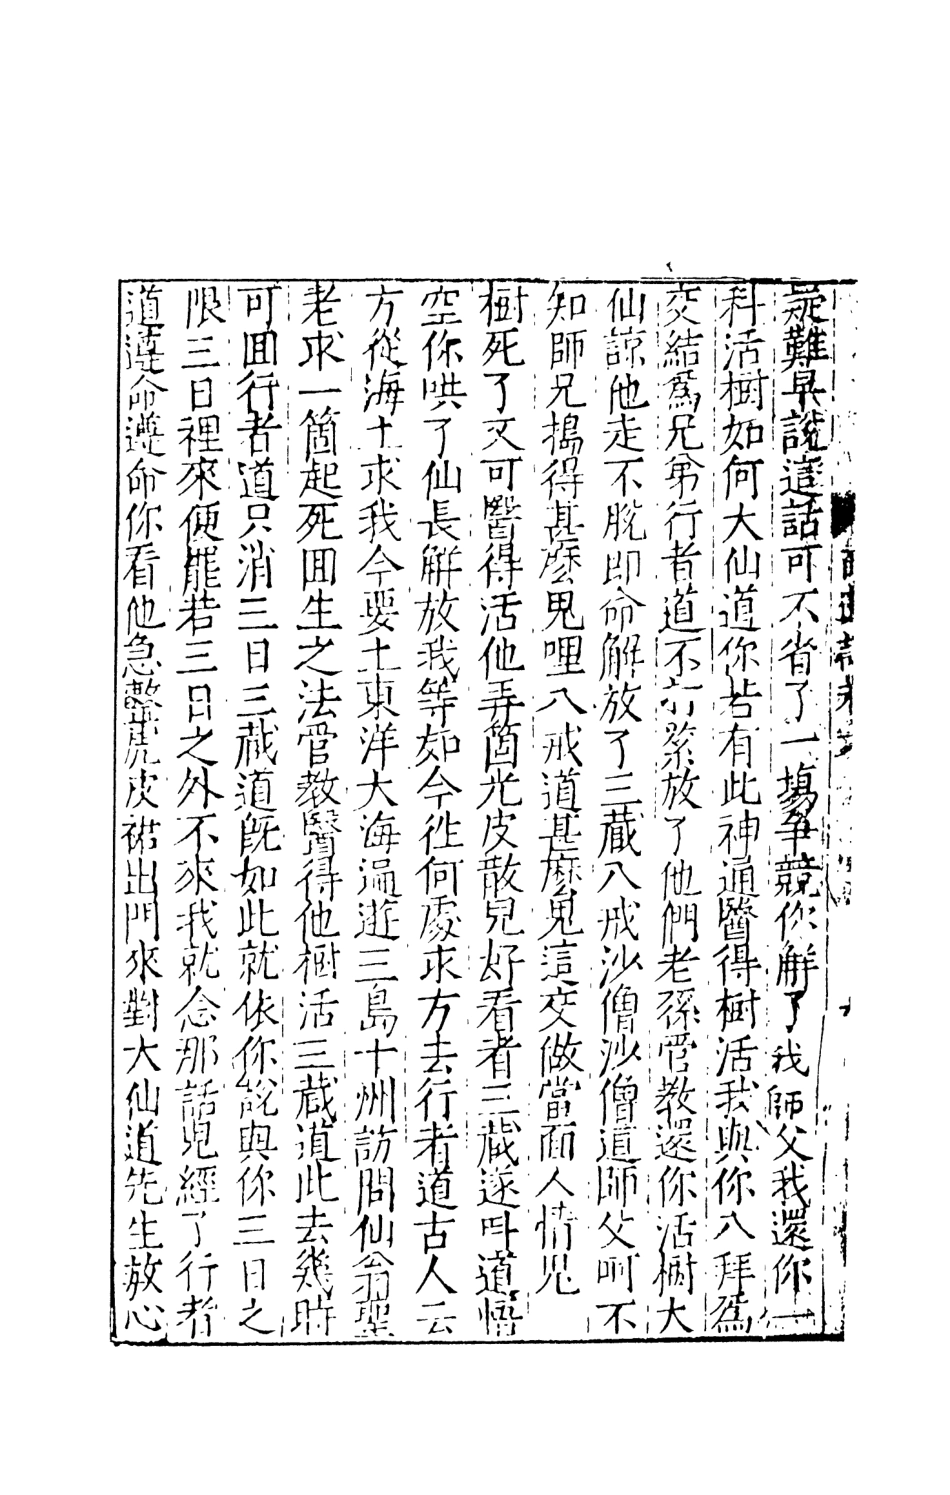 疑難早說這話可不省了一場爭競你解了我師父我還你一
科活樹如何大仙道你若有此神通醫得樹活我與你八拜爲
交結爲兄弟行者道不打緊放了他們老孫管教還你活樹大
仙諒他走不脫即命解放了三藏八戒沙僧沙僧道師父呵不
知師兄搗得甚麼鬼哩八戒道甚麼鬼這交做當面人情兒
樹死了又可醫得活他弄箇光皮散兒好看者三藏遂呌道悟
空你哄了仙長解放我等如今徃何處求方去行者道古人云
方從海上求我今要上東洋大海遍遊三島十州訪問仙翁聖
老求一箇起死囬生之法管教醫得他樹活三藏道此去幾時
可囬行者道只消三日三藏道旣如此就依你說與你三日之
限三日裡來便罷若三日之外不來我就念那話兒經了行者
道遵命遵命你看他急整虎皮裙出門來對大仙道先生放心